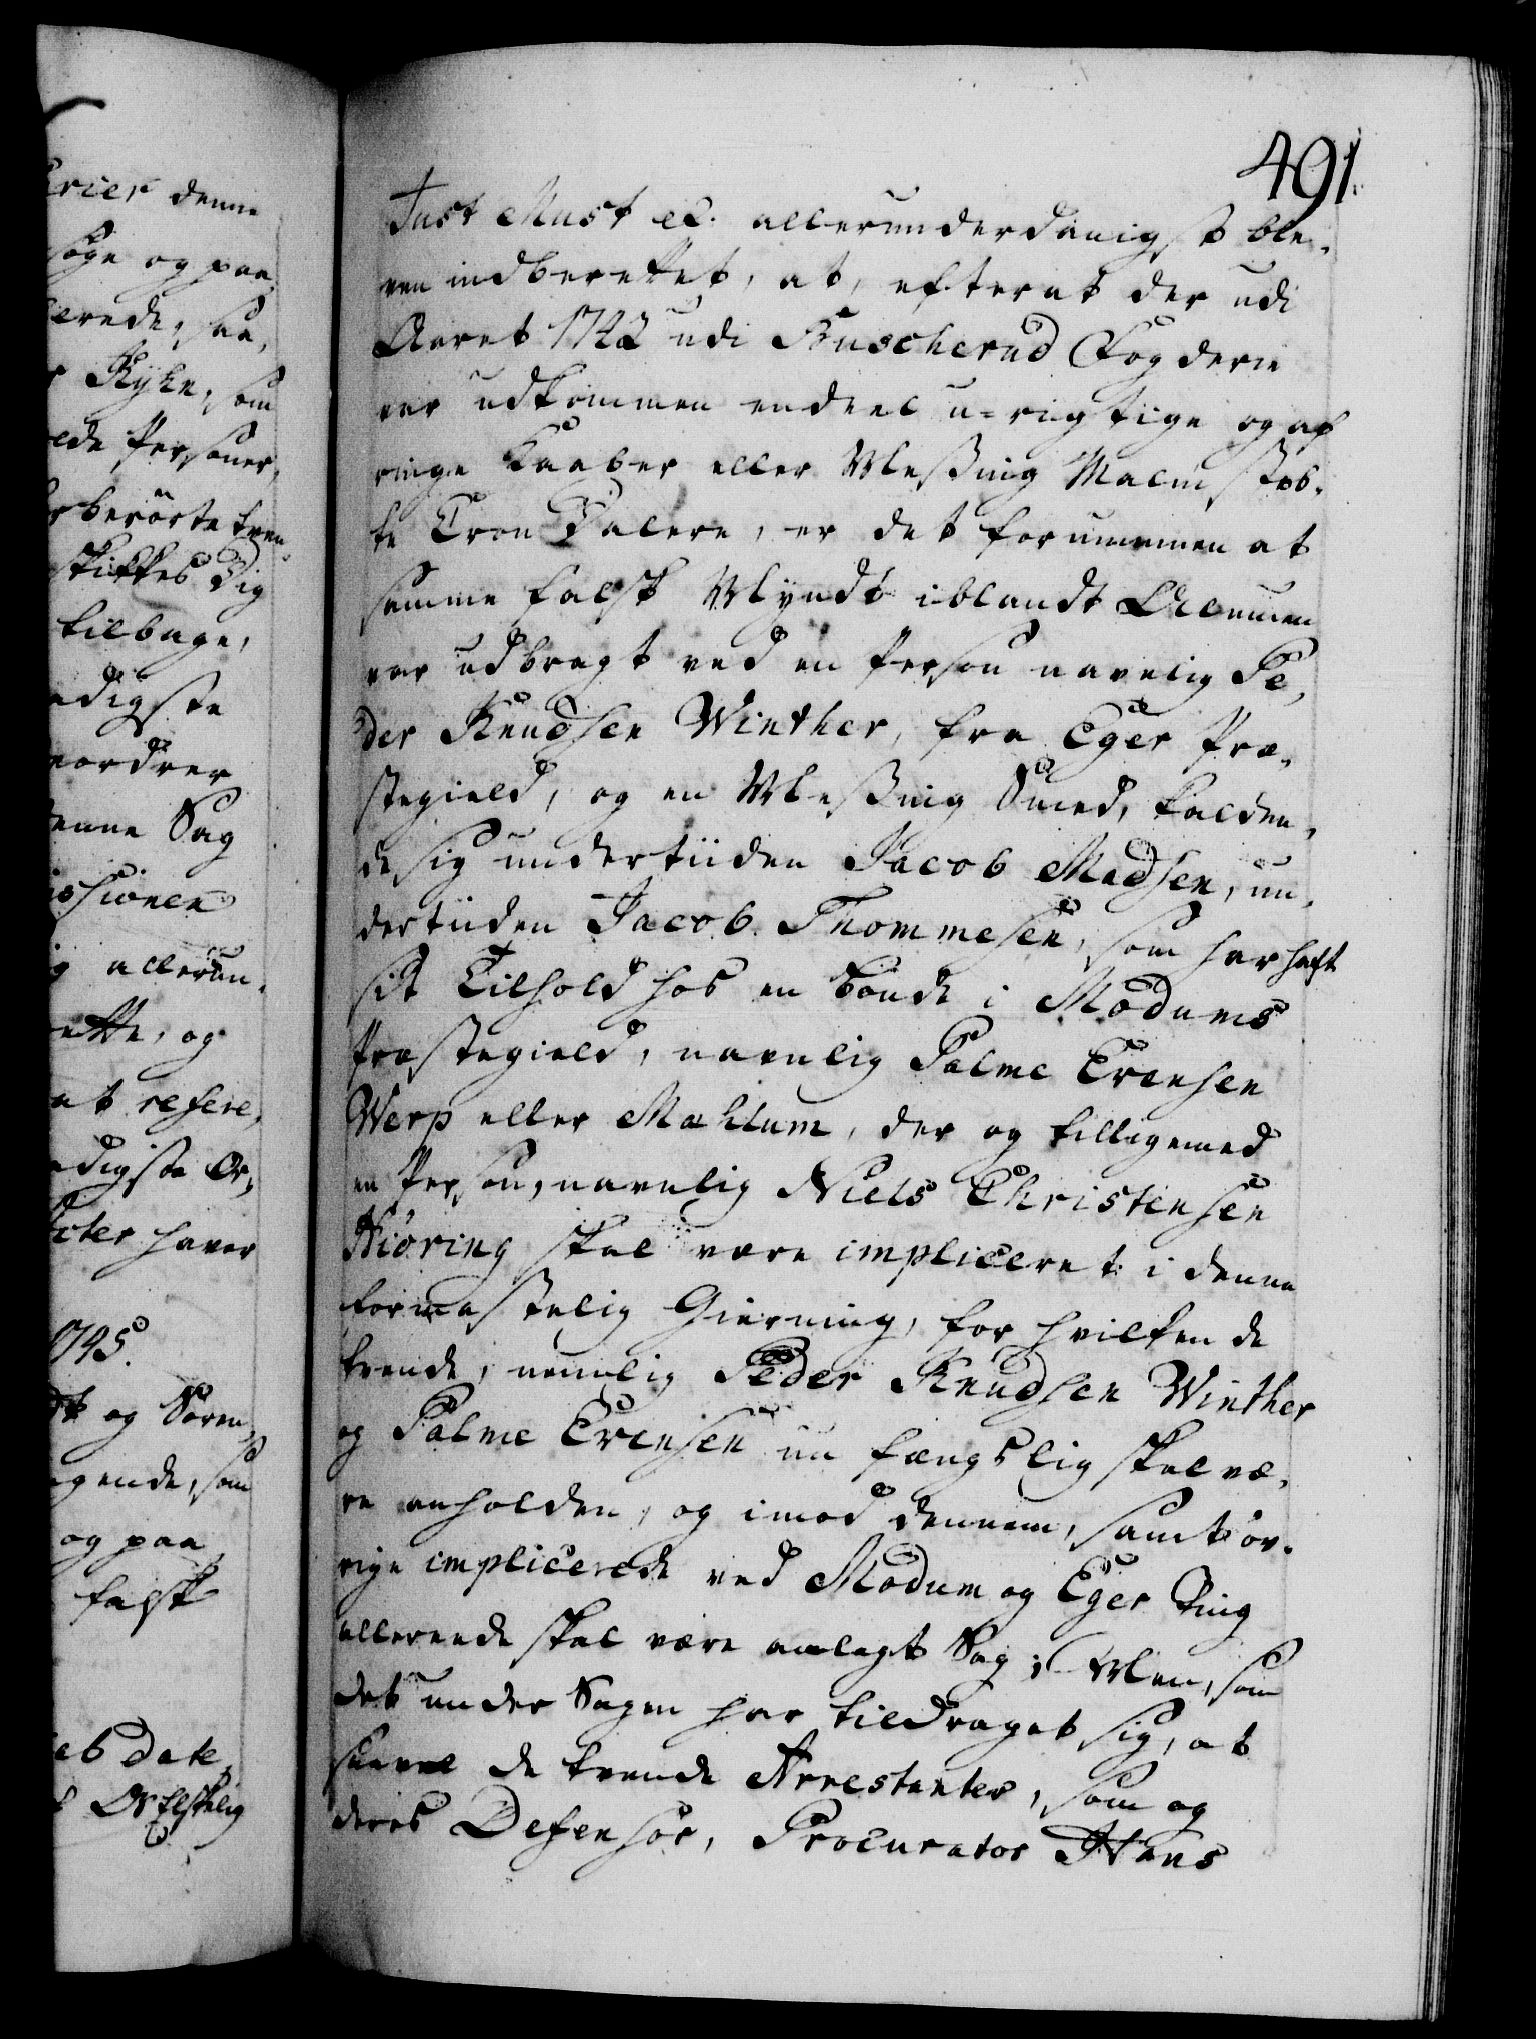 491.
Just Must etc. allerunderdanigst ble-
ven indberettet, at, efterat der udi
Aaret 1742 udi Buscherud Fogderie
var udkommen endeel u-rigtige og af
ringe Kaaber eller Messing Malm støb-
te Cron Dalere, er det fornummen at
samme falsk Myndt iblandt Almuen
var udbragt ved en Person navnlig Pe-
der Knudsen Winther, fra Eger Præ-
stegield, og en Messing Smed, kalden-
de sig undertiiden Jacob Madsen, un-
dertiiden Jacob Thommesen, som har haft
sit Tilhold hos en Bonde i Modums
Præstegield, navnlig Palme Evensen
Werp eller Mælum, der og tilligemed
en Person, navnlig Niels Christensen
Hiøring skal være impliceret i denne
formastelig Gierning, for hvilken de
tvende, nemlig Peder Knudsen Winther
og Palme Evensen nu fængslig skal væ-
re anholden, og imod dennem, samt øv-
rige implicerede ved Modum og Eger Ting
allereede skal være anlagt Sag; Men, som
det under Sagen har tildraget sig, at
saavel de tvende Arrestanter, som og
deres Defensor, Procurator Hans
denne
søge og paa
Ryhe, som
Personer,
berørte tven-
skikkes Dig
tilbage,
denne Sag
allerun-
og
at refere-
haver
1745.
og Søren
som
og paa
falsk
date